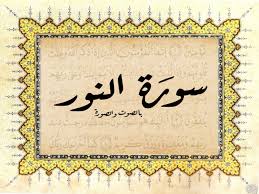 سورة النور
بالصوت والصورة